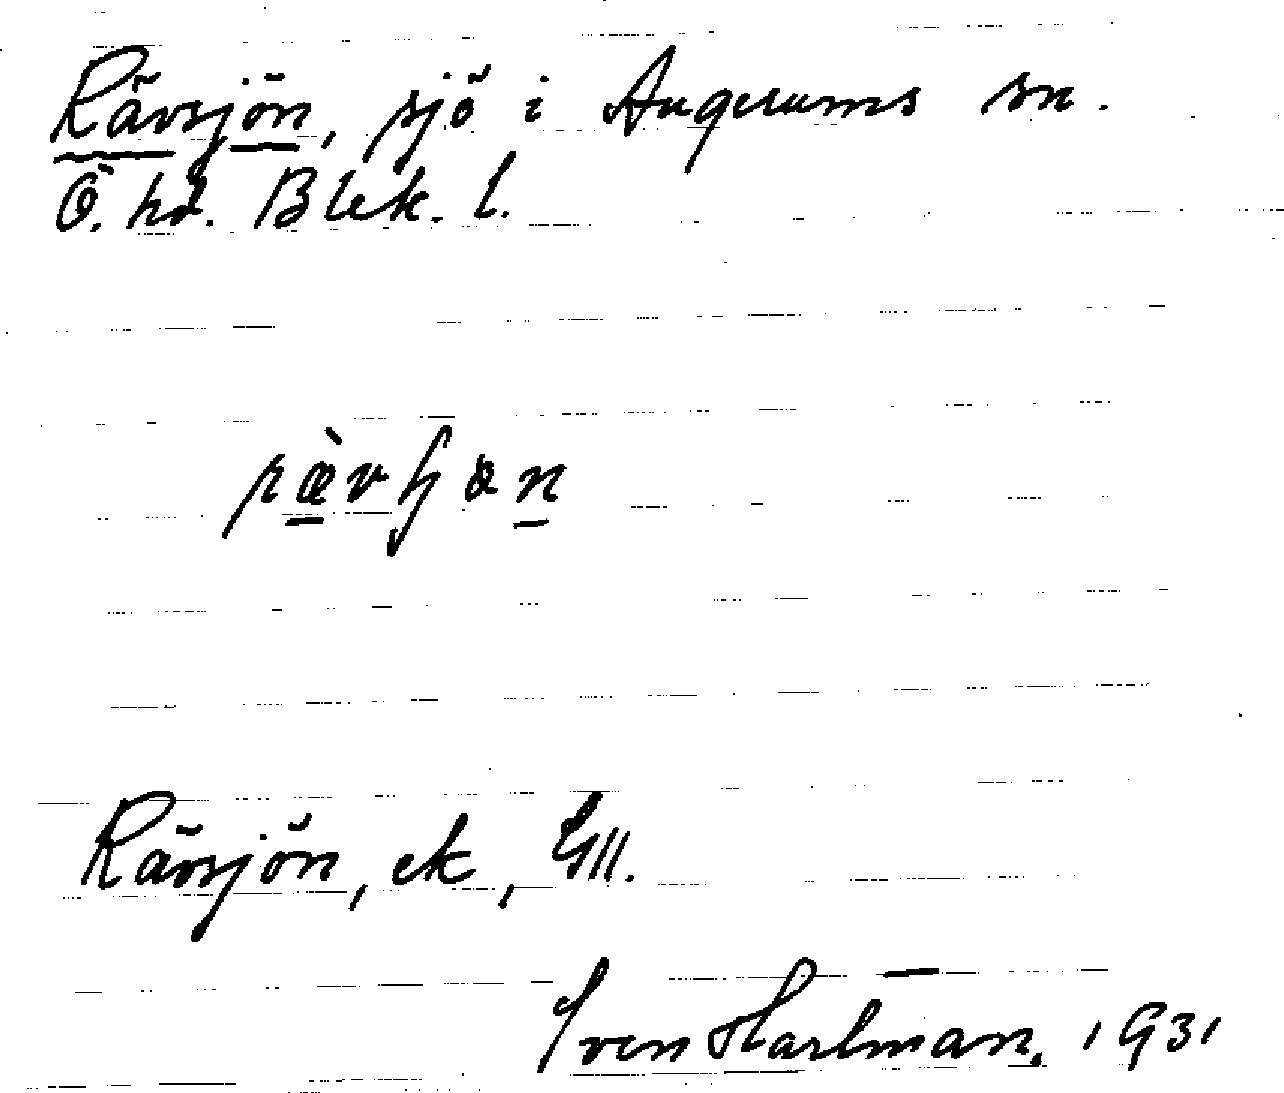 Rävsjön, sjö i Augerums sn.
Ö. hd. Blek. l.
Rävsjön, ek, Gll.
Sven Harlman. 1931